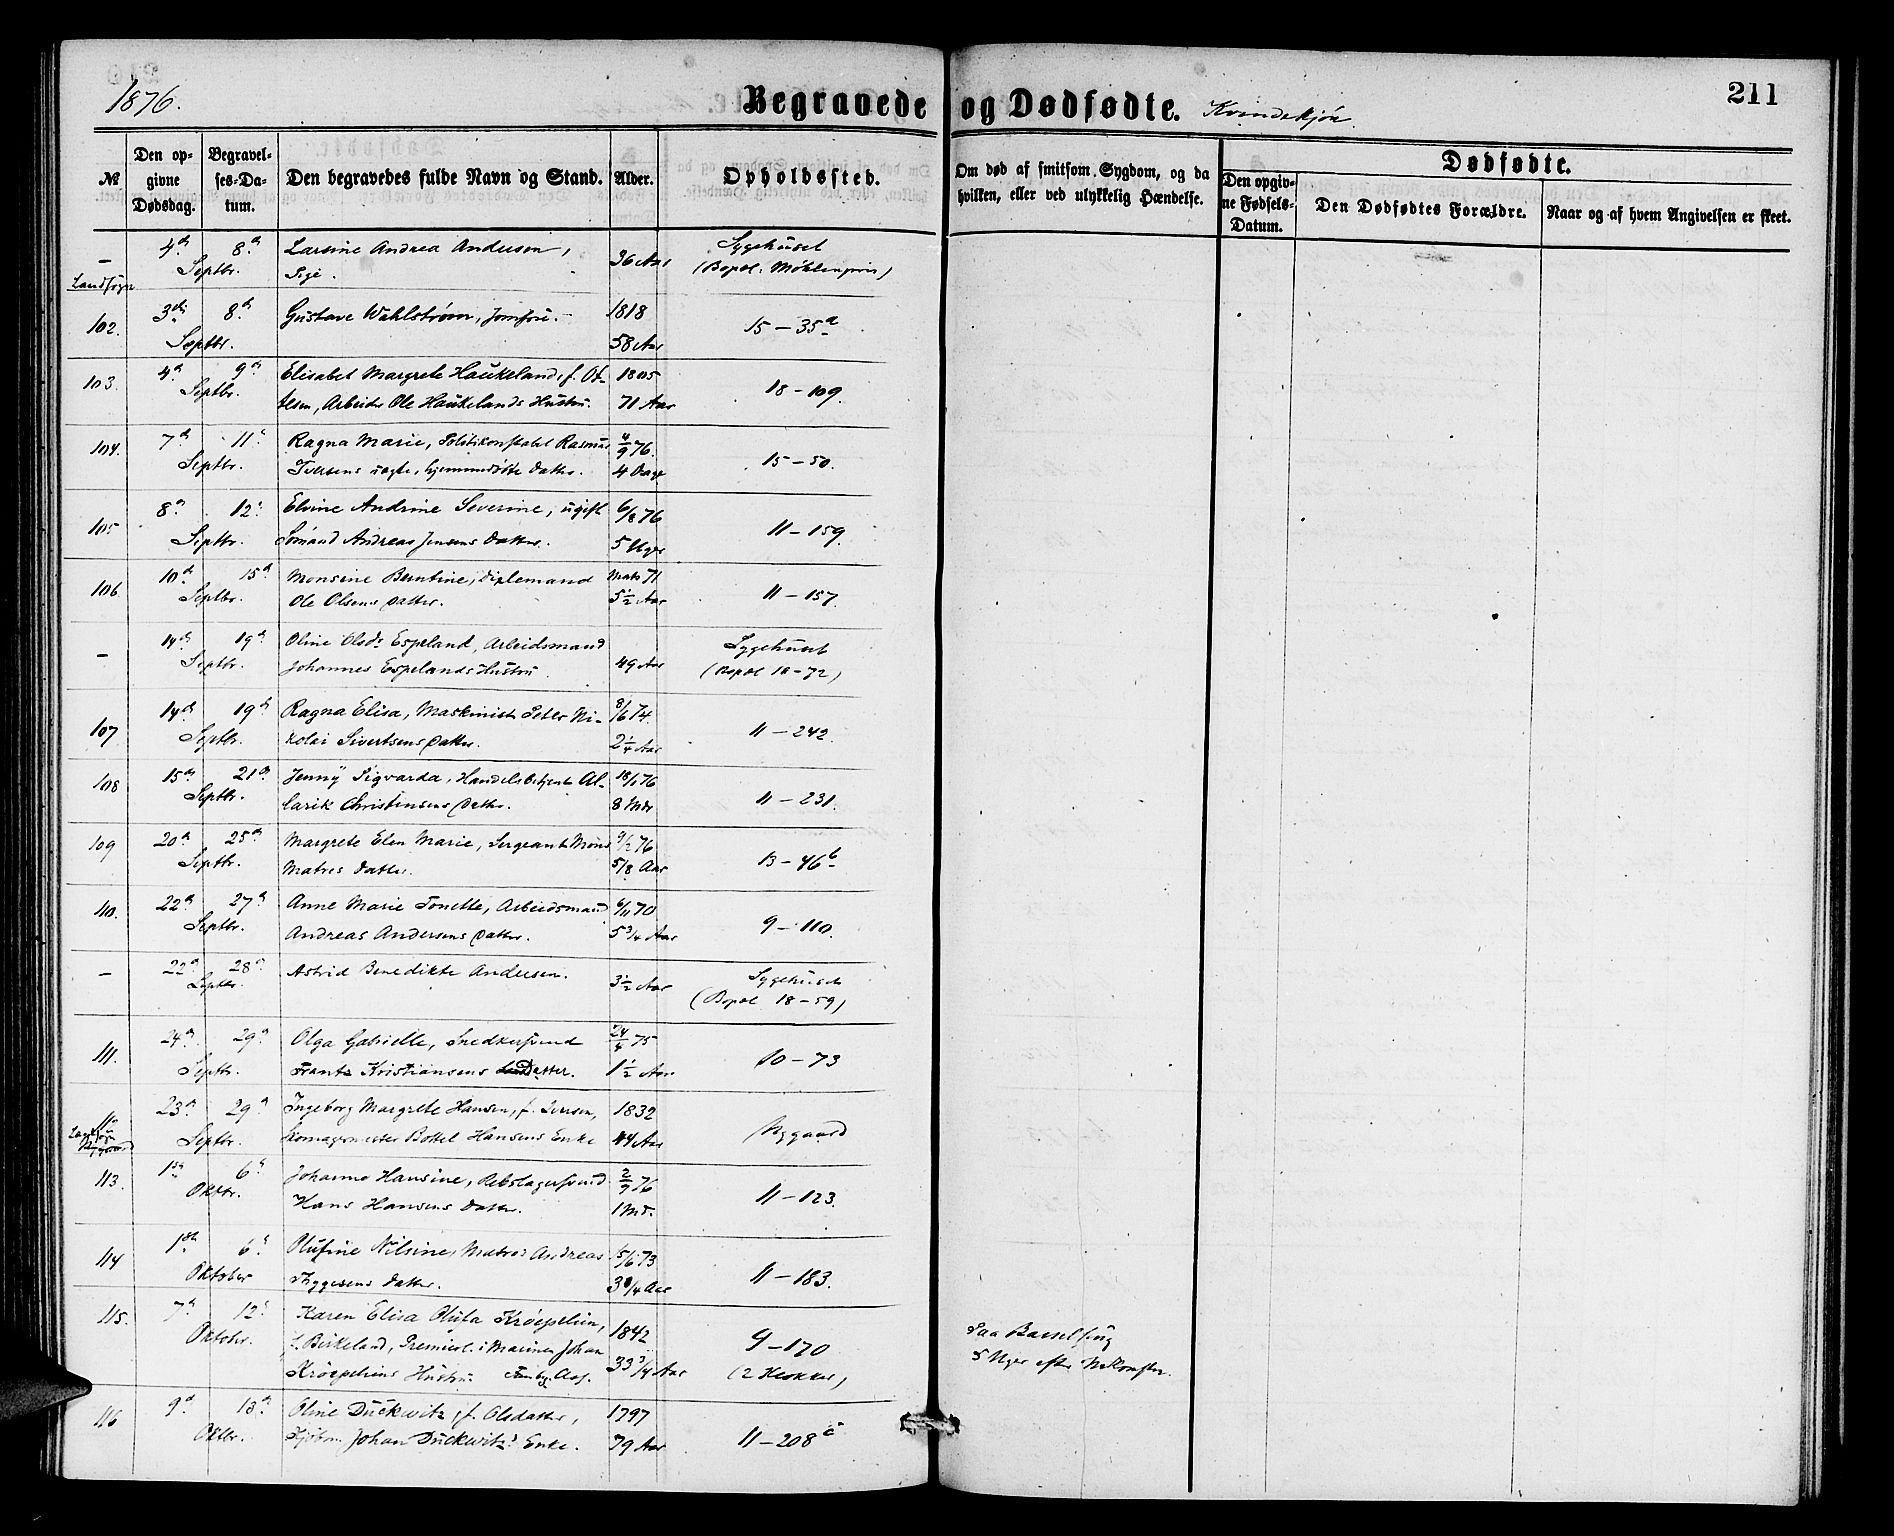 1876.
Begravede og Dødfødte. Kvindekjøn
211
№
Den opgivne Dødsdag.
Begravelses-Datum.
Den begravedes fulde Navn og Stand.
Alder.
Opholdssted.
Om død af smitsom Sygdom, og da hvilken, eller ved ulykkelig Hændelse.
Dødfødte.
Den opgivne Fødsels-Datum.
Den Dødfødtes Forældre.
Naar og af hvem Angivelsen er skeet.
– 4de 8de Larsine Andrea Andersen, Sygehuset
Landsogn Septbr. Pige. 36 Aar (Bopæl: Møhlenpris)
102. 3die 8de Gustave Wahlstrøm, Jomfru. 1818 15 – 35a
Septbr. 58 Aar
103. 4de 9de Elisabet Margrete Haukeland, f. Ot- 1805 18 – 109.
Septbr. tesen, Arbeider Ole Haukelands Hustru. 71 Aar
104. 7de 11te Ragna Marie, Politikonstabel Rasmus 4/9 76. 15 – 50.
Septbr. Iversens uægte, hjemmedøbte Datter. 4 Dage
105 8de 12te Elvine Andrine Severine, ugift 6/8 76 11 – 159.
Septbr. Sømand Andreas Jensens Datter. 5 Uger
106 10de 15de Monsine Berntine, Diplemand Marts 71 11 – 157.
Septbr. Ole Olsens Datter. 5½ Aar
– 14de 19de Oline Olsdr Espeland, Arbeidsmand Sygehuset
Septbr. Johannes Espelands Hustru 49 Aar (Bopæl 18 – 72)
107 14de 19de Ragna Elisa, Maskinist Peter Ni- 8/6 74. 11 – 242.
Septbr. kolai Sivertsens Datter. 2¼ Aar
108 15de 21de Jenny Sigvarda, Handelsbetjent Al- 18/1 76 11 – 231.
Septbr. larik Christensens Datter. 8 Mdr
109 20de 25de Margrete Elen Marie, Sergeant Mons 9/2 76 13 – 46b
Septbr. Matres Datter. 5/8 Aar
110. 22de 27de Anne Marie Tonette, Arbeidsmand 6/11 70 9 – 110.
Septbr. Andreas Andersens Datter. 5¾ Aar
– 22de 28de Astrid Benedikte Andersen. Sygehuset
Septbr. 3½ Aar (Bopæl 18 – 59)
111. 24de 29de Olga Gabrielle, Snedkersvend 24/4 75 10 – 73
Septbr. Frantz Kristiansens Datter. 1½ Aar
23de 29de Ingeborg Margrete Hansen, f. Iversen, 1832 Nygaard
Landsogn Nygaard Septbr. Skomagermester Bottel Hansens Enke 44 Aar
113. 1ste 6te Johanne Hansine, Rebslagersvend 2/9 76 11 – 123.
Oktbr. Hans Hansens Datter. 1 Md.
114 1ste 6te Olufine Nilsine, Matros Andreas 15/6 73 11 – 183.
Oktober Tyggesens Datter. 3¼ Aar
115. 7de 12te Karen Elisa Olufa Krøepelien, 1842 9 – 170 Paa Barselseng
Oktober. f. Birkeland, Premierl. i Marinen Johan 33¾ Aar (2 Klokker) 5 Uger efter Nedkomsten.
Krøepeliens Hustru.
116 9de 13de Oline Duckwitz, f. Olsdatter, 1797 11 – 208c
Oktbr. Kjøbm. Johan Duckwitz' Enke. 79 Aar